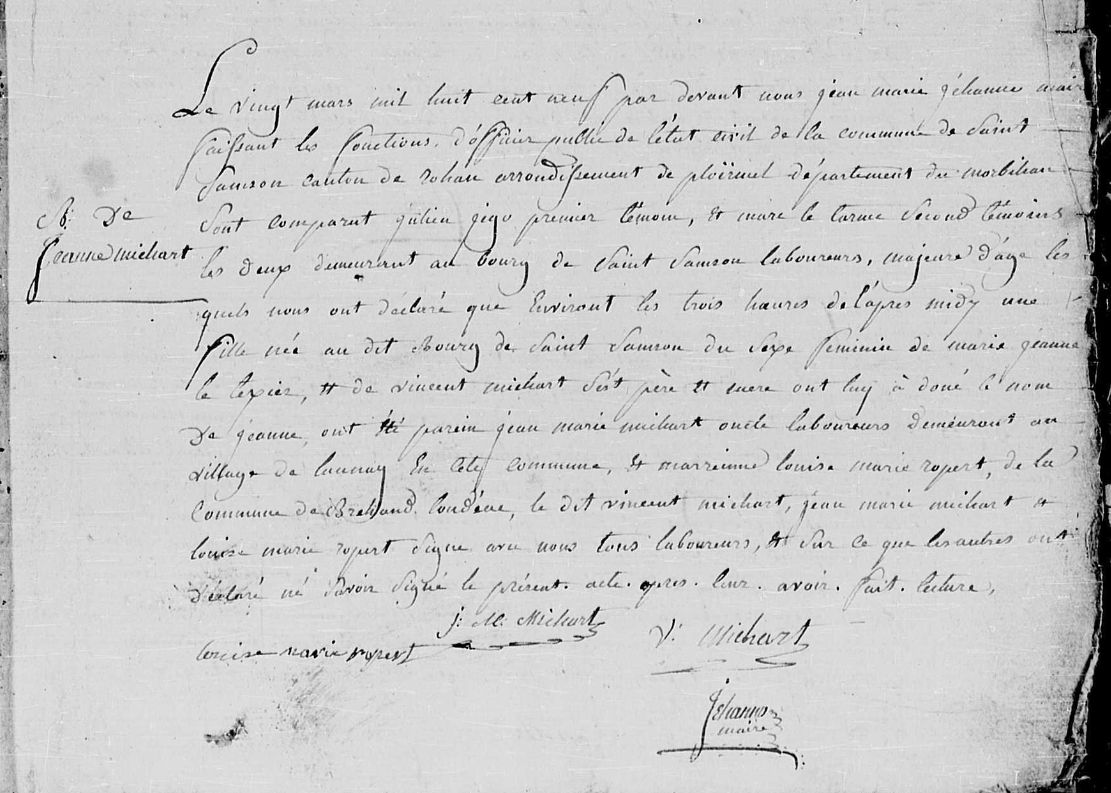 Le vingt mars mil huit cent neuf par devant nous jean marie jéhanne mair
faissant les fonctions d'officier public de létat civil de la commune de Saint
Samson canton de rohan arrondissement de ploërmel département du morbihan
N. De
jeanne michart
Sont comparut julien gigo premier témoin, et marc le tarme second témoins
les deux demeurant au bourg de Saint Samson laboureurs, majeure d'âge les
quels nous ont déclaré que Environt les trois hœures de l'apres midy une
fille née au dit Bourg de Saint Samson du Sexe feminin de marie jéanne
le texier, et de vincent michart sest père et mere ont luy à doné le nom
De jeanne, ont été parein jéan marie michart oncle laboureurs demeurant au
village de launay En cete commune, et marreinne louise marie ropert, de la
commune de Brehand loudéac, le dit vincent michart, jean marie michart et
louise marie ropert Signe avec nous tous laboureurs, et Sur ce que les autres ont
déclaré né Savoir Signé le présent. acte. apres. leur. avoir. fait. lecture,
j: M: Michart
V: Michart
louise marie ropert
jéhanno
maire